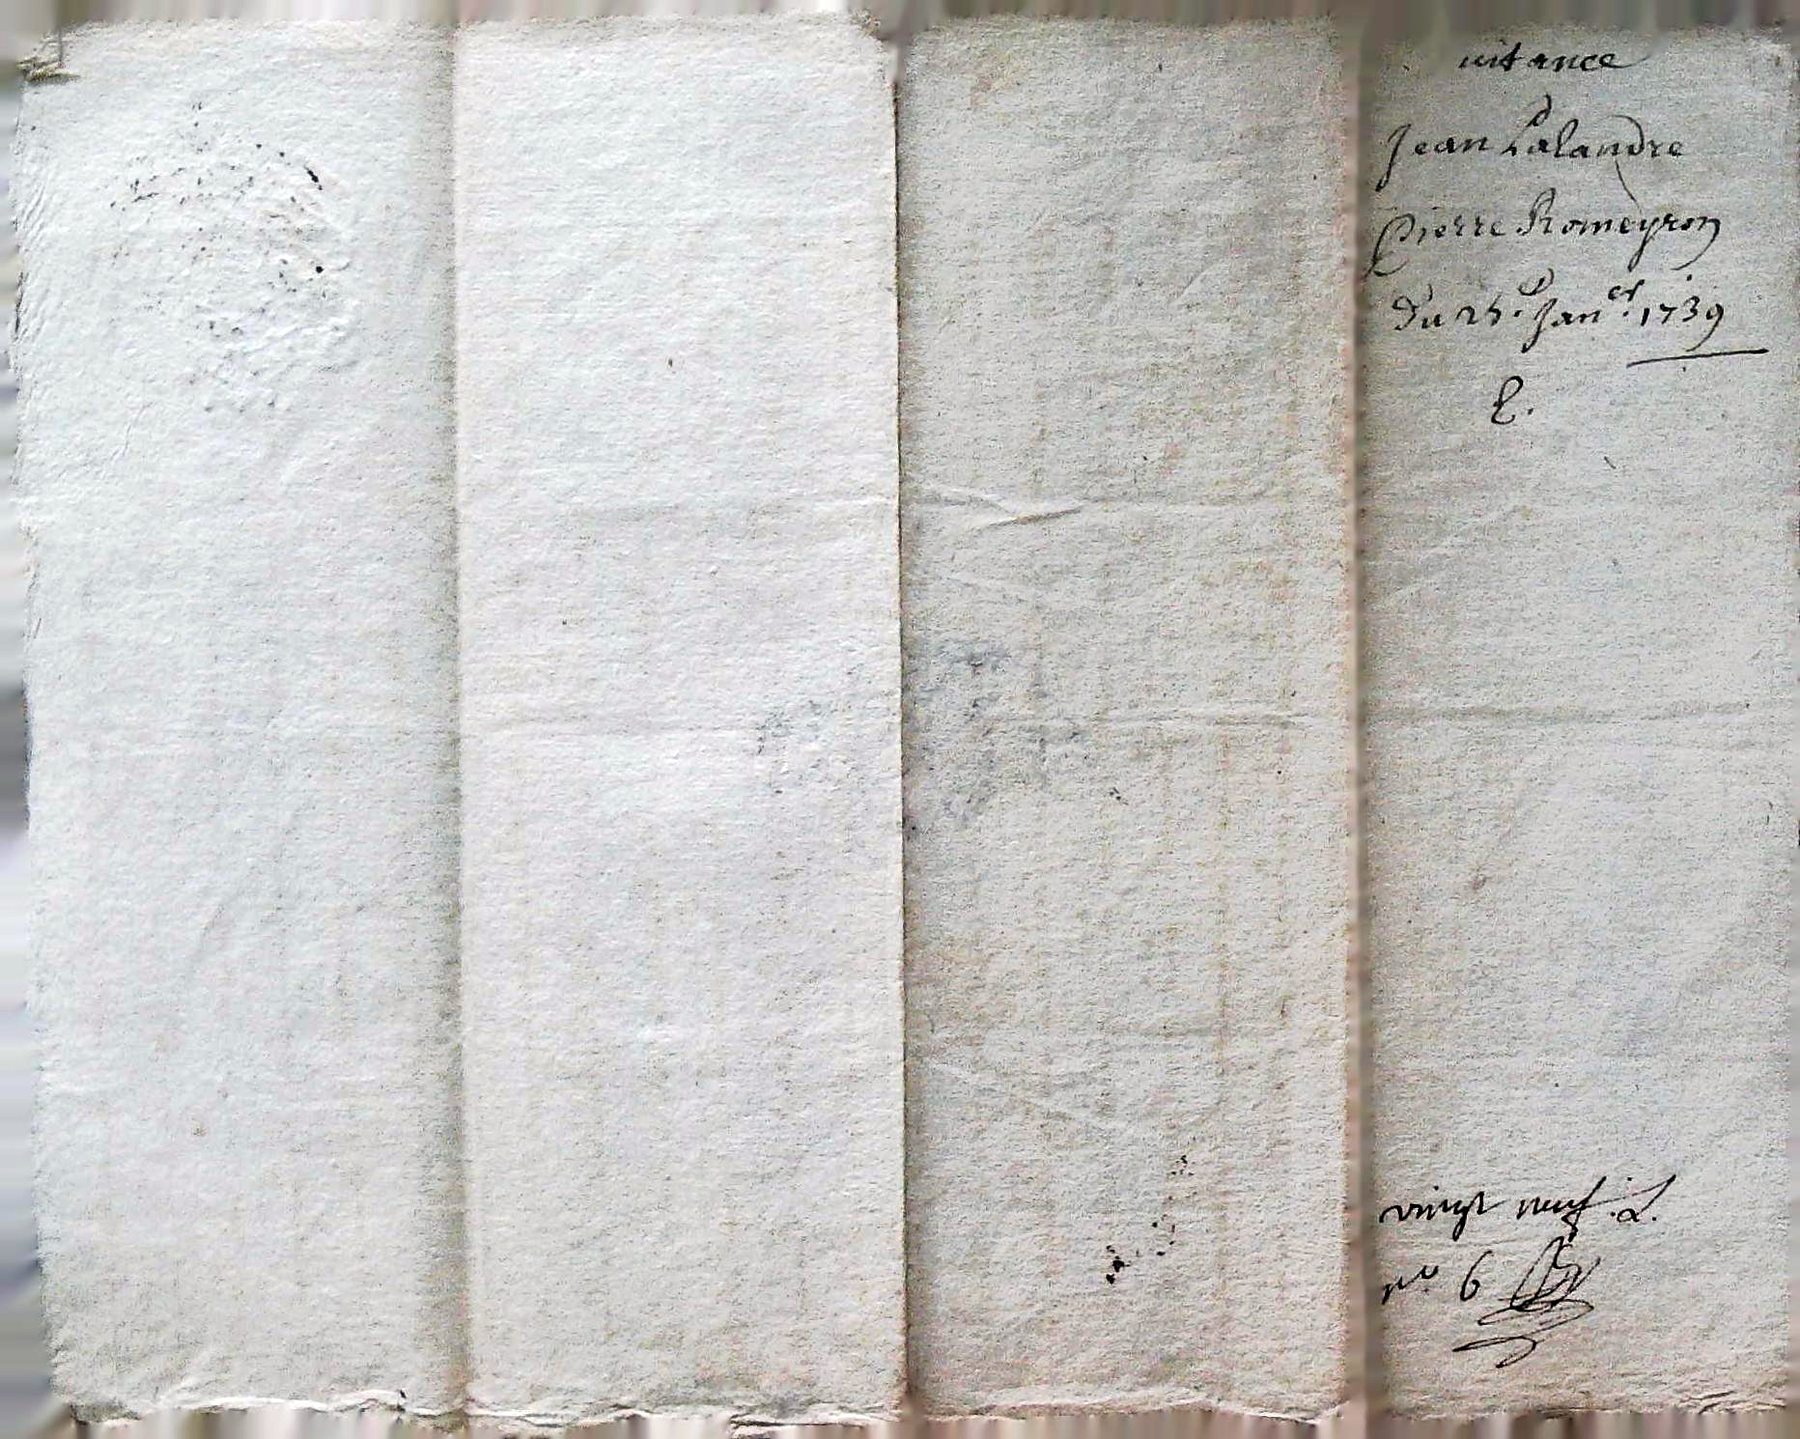 uitance
Jean Lalandre
Pierre Romeyron
du 25e Janer 1739
vingt neuf
no 6